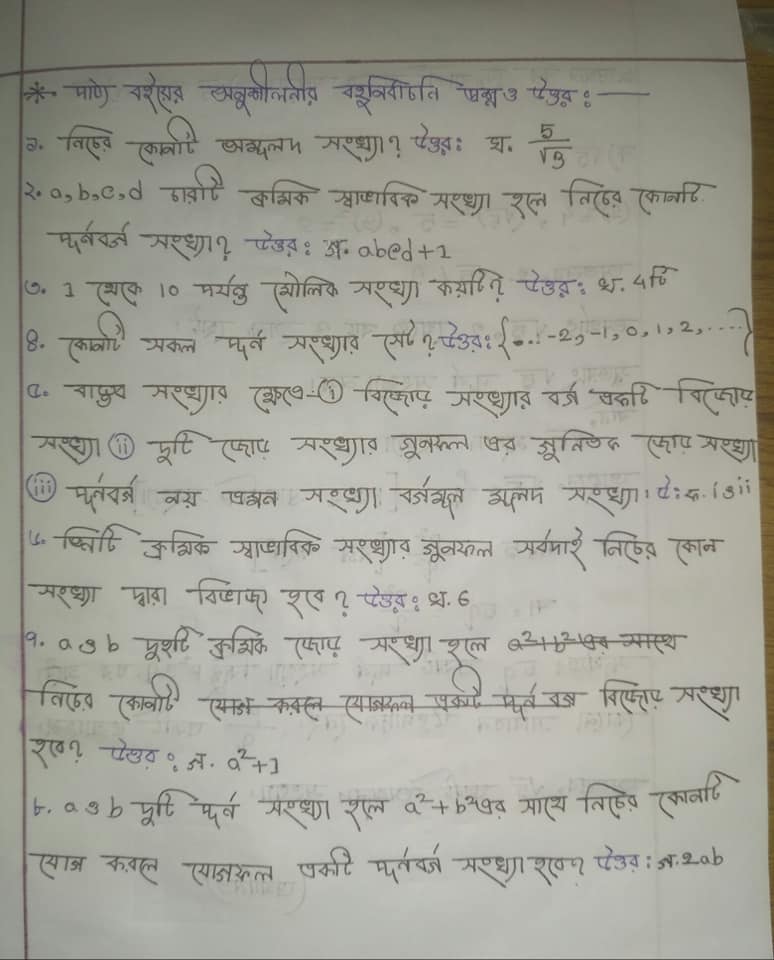 * পাঠ্য বইয়ের অনুশীলনীর বহুনির্বাচনি প্রশ্ন ও উত্তর : —
১. নিচের কোনটি অমূলদ সংখ্যা? উত্তর: খ. 5/√3
২. a, b, c, d চারটি ক্রমিক স্বাভাবিক সংখ্যা হলে নিচের কোনটি
পূর্ণবর্গ সংখ্যা? উত্তর : গ. abcd+1
৩. 1 থেকে 10 পর্যন্ত মৌলিক সংখ্যা কয়টি? উত্তর: খ. 4টি
৪. কোনটি সকল পূর্ণ সংখ্যার সেট? উত্তর: {...-2, -1, 0, 1, 2, ....}
৫. বাস্তব সংখ্যার ক্ষেত্রে- (i) বিজোড় সংখ্যার বর্গ একটি বিজোড়
সংখ্যা (ii) দুটি জোড় সংখ্যার গুনফল এর গুনিতক জোড় সংখ্যা
(iii) পূর্ণবর্গ নয় এমন সংখ্যা বর্গমূল মূলদ সংখ্যা। উ: ক. i ও ii
৬. তিনটি ক্রমিক স্বাভাবিক সংখ্যার গুনফল সর্বদাই নিচের কোন
সংখ্যা দ্বারা বিভাজ্য হবে? উত্তর: ঘ. 6
৭. a ও b দুইটি ক্রমিক জোড় সংখ্যা হলে a²+b² এর সাথে
নিচের কোনটি যোগ করলে যোগফল একটি পূর্ণ বর্গ বিজোড় সংখ্যা
হবে? উত্তর : গ. a²+1
৮. a ও b দুটি পূর্ণ সংখ্যা হলে a²+b² এর সাথে নিচের কোনটি
যোগ করলে যোগফল একটি পূর্ণবর্গ সংখ্যা হবে? উত্তর : গ. 2ab